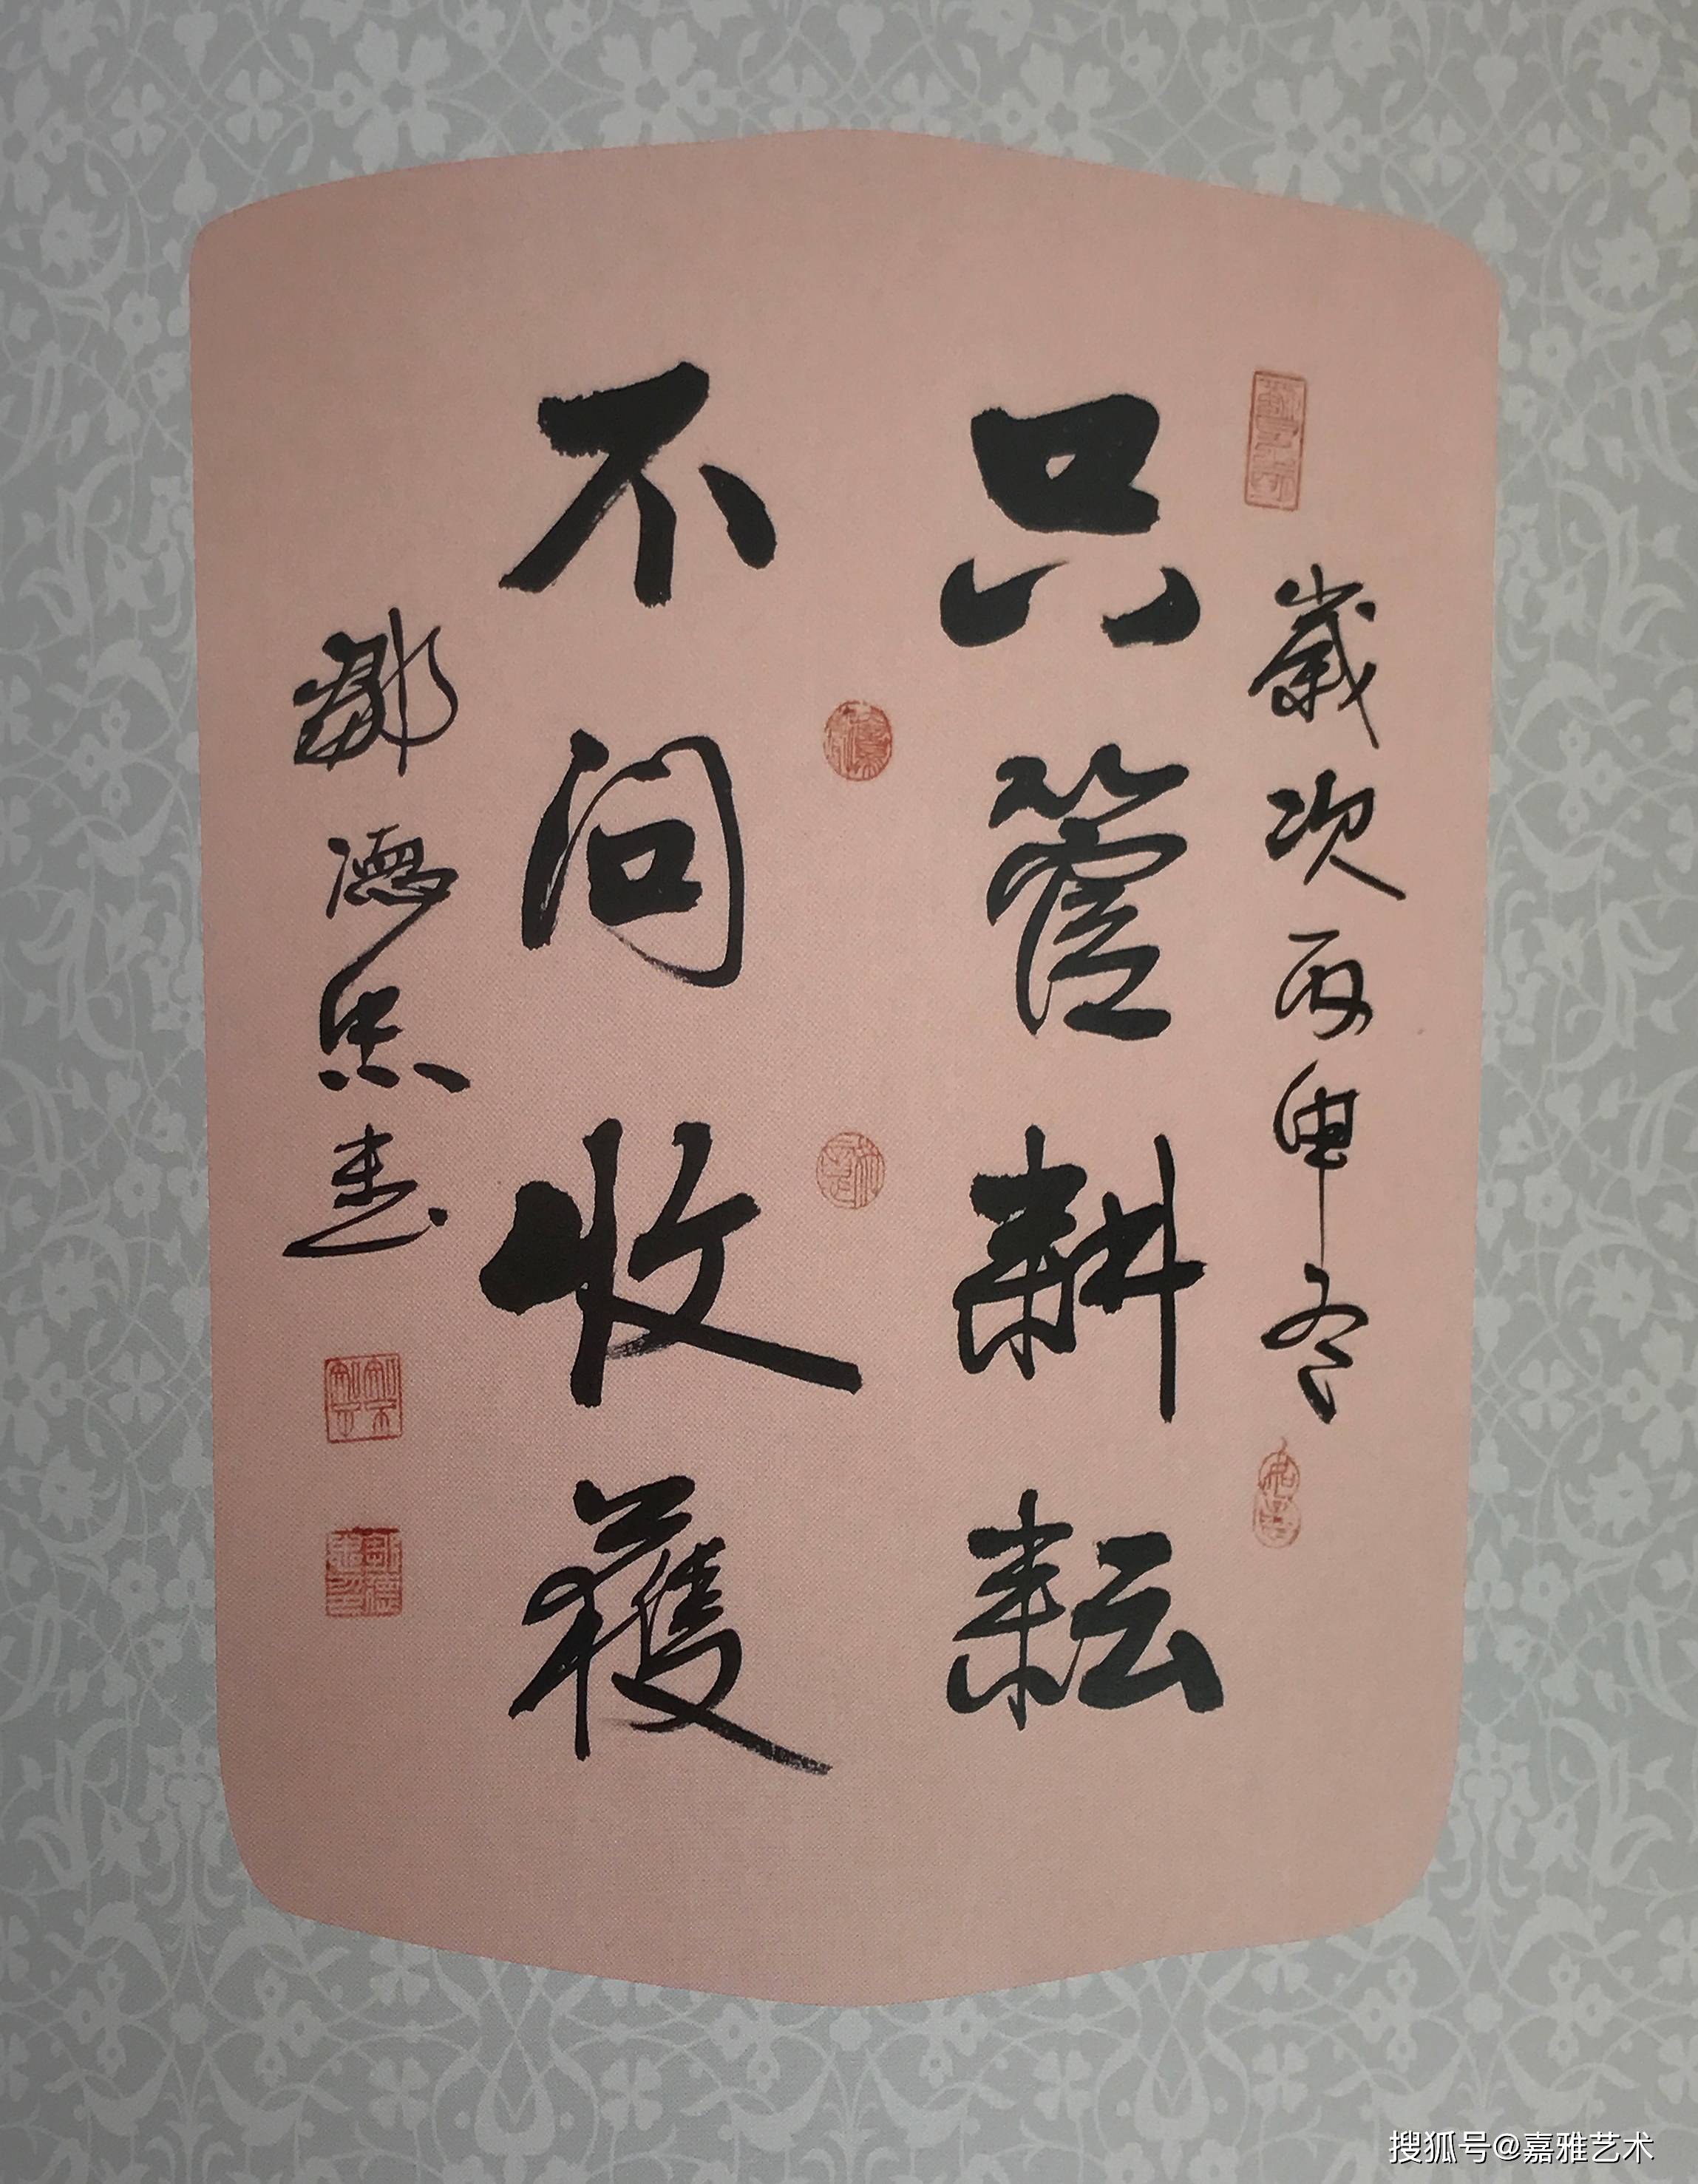 歲次丙申冬
只管耕耘
不問收穫
鄒德忠書
搜狐号@嘉雅艺术